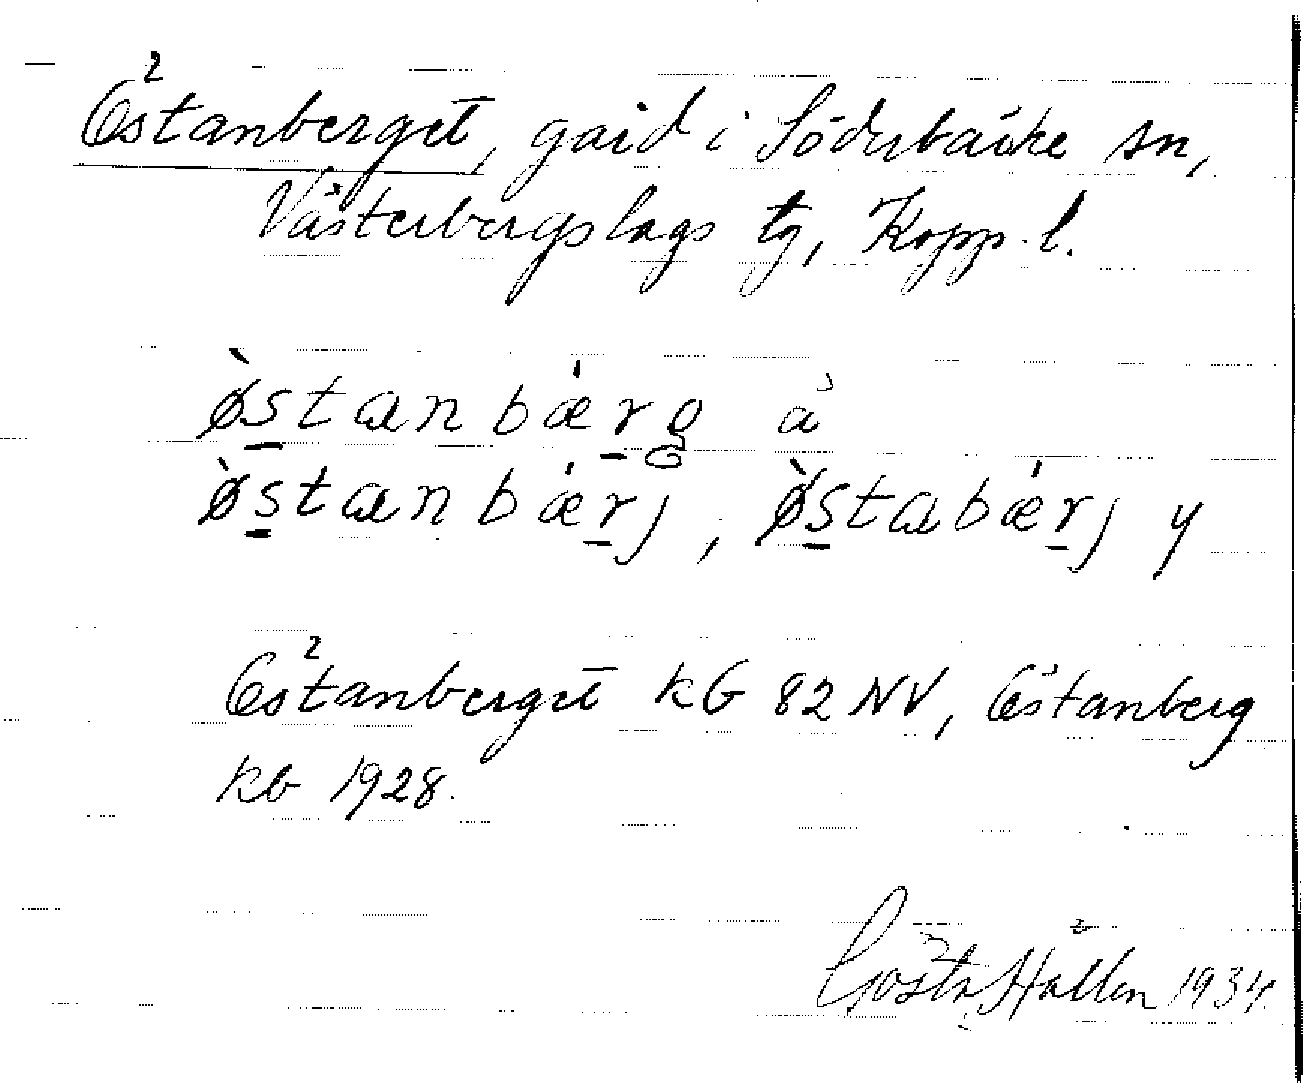 Östanberget, gård i Söderbärke sn,
Västerbergslags tg, Kopp. l.
ø̀stanbærg ä
ø̀stanbærj, ø̀stabærj y
Östanberget kG 82 NV, Östanberg
kb 1928.
Gösta Hållén 1934.